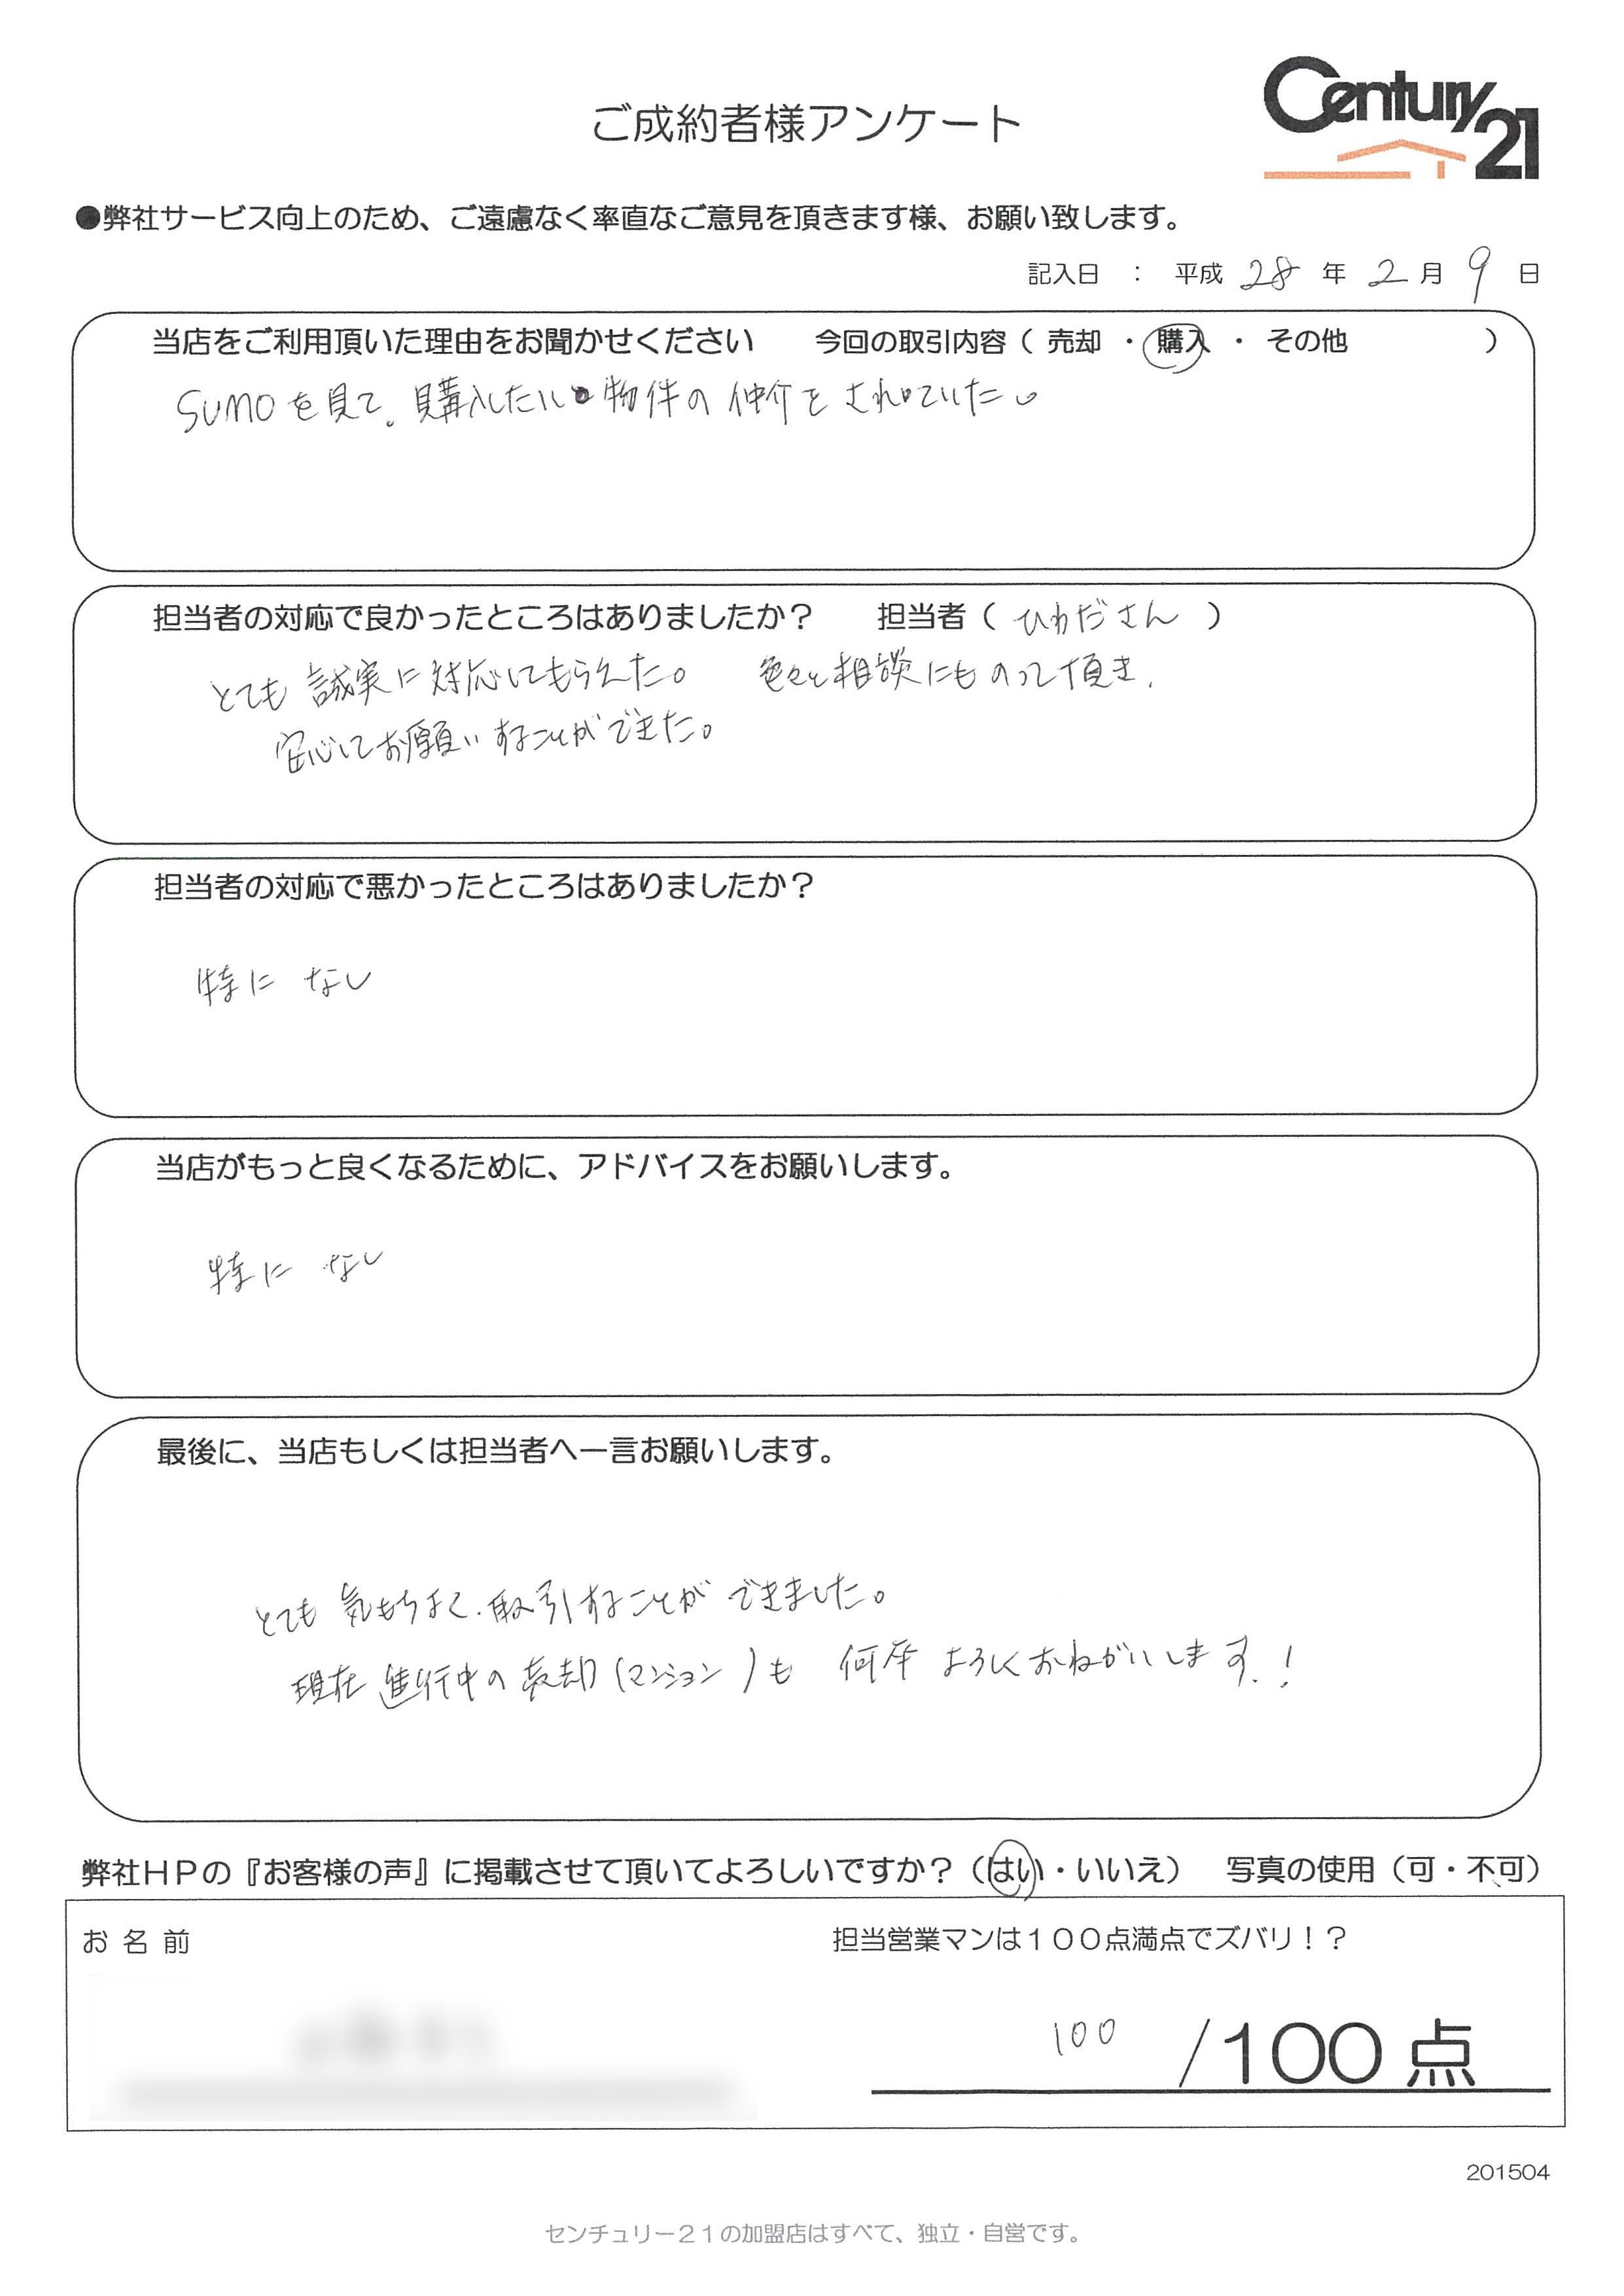 Century 21
ご成約者様アンケート
●弊社サービス向上のため、ご遠慮なく率直なご意見を頂きます様、お願い致します。
記入日 : 平成 28 年 2 月 9 日
当店をご利用頂いた理由をお聞かせください 今回の取引内容( 売却 ・ 購入 ・ その他 )
SUMOを見て、購入したい物件の仲介をされていた。
担当者の対応で良かったところはありましたか? 担当者( ひわださん )
とても誠実に対応してもらえた。 色々と相談にものって頂き、
安心してお願いすることができた。
担当者の対応で悪かったところはありましたか?
特に なし
当店がもっと良くなるために、アドバイスをお願いします。
特に なし
最後に、当店もしくは担当者へ一言お願いします。
とても 気もちよく、取引することが できました。
現在 進行中の売却(マンション)も 何卒 よろしくおねがいします!
弊社HPの『お客様の声』に掲載させて頂いてよろしいですか?(はい・いいえ) 写真の使用(可・不可)
お名前 担当営業マンは100点満点でズバリ!?
100 /100点
201504
センチュリー21の加盟店はすべて、独立・自営です。